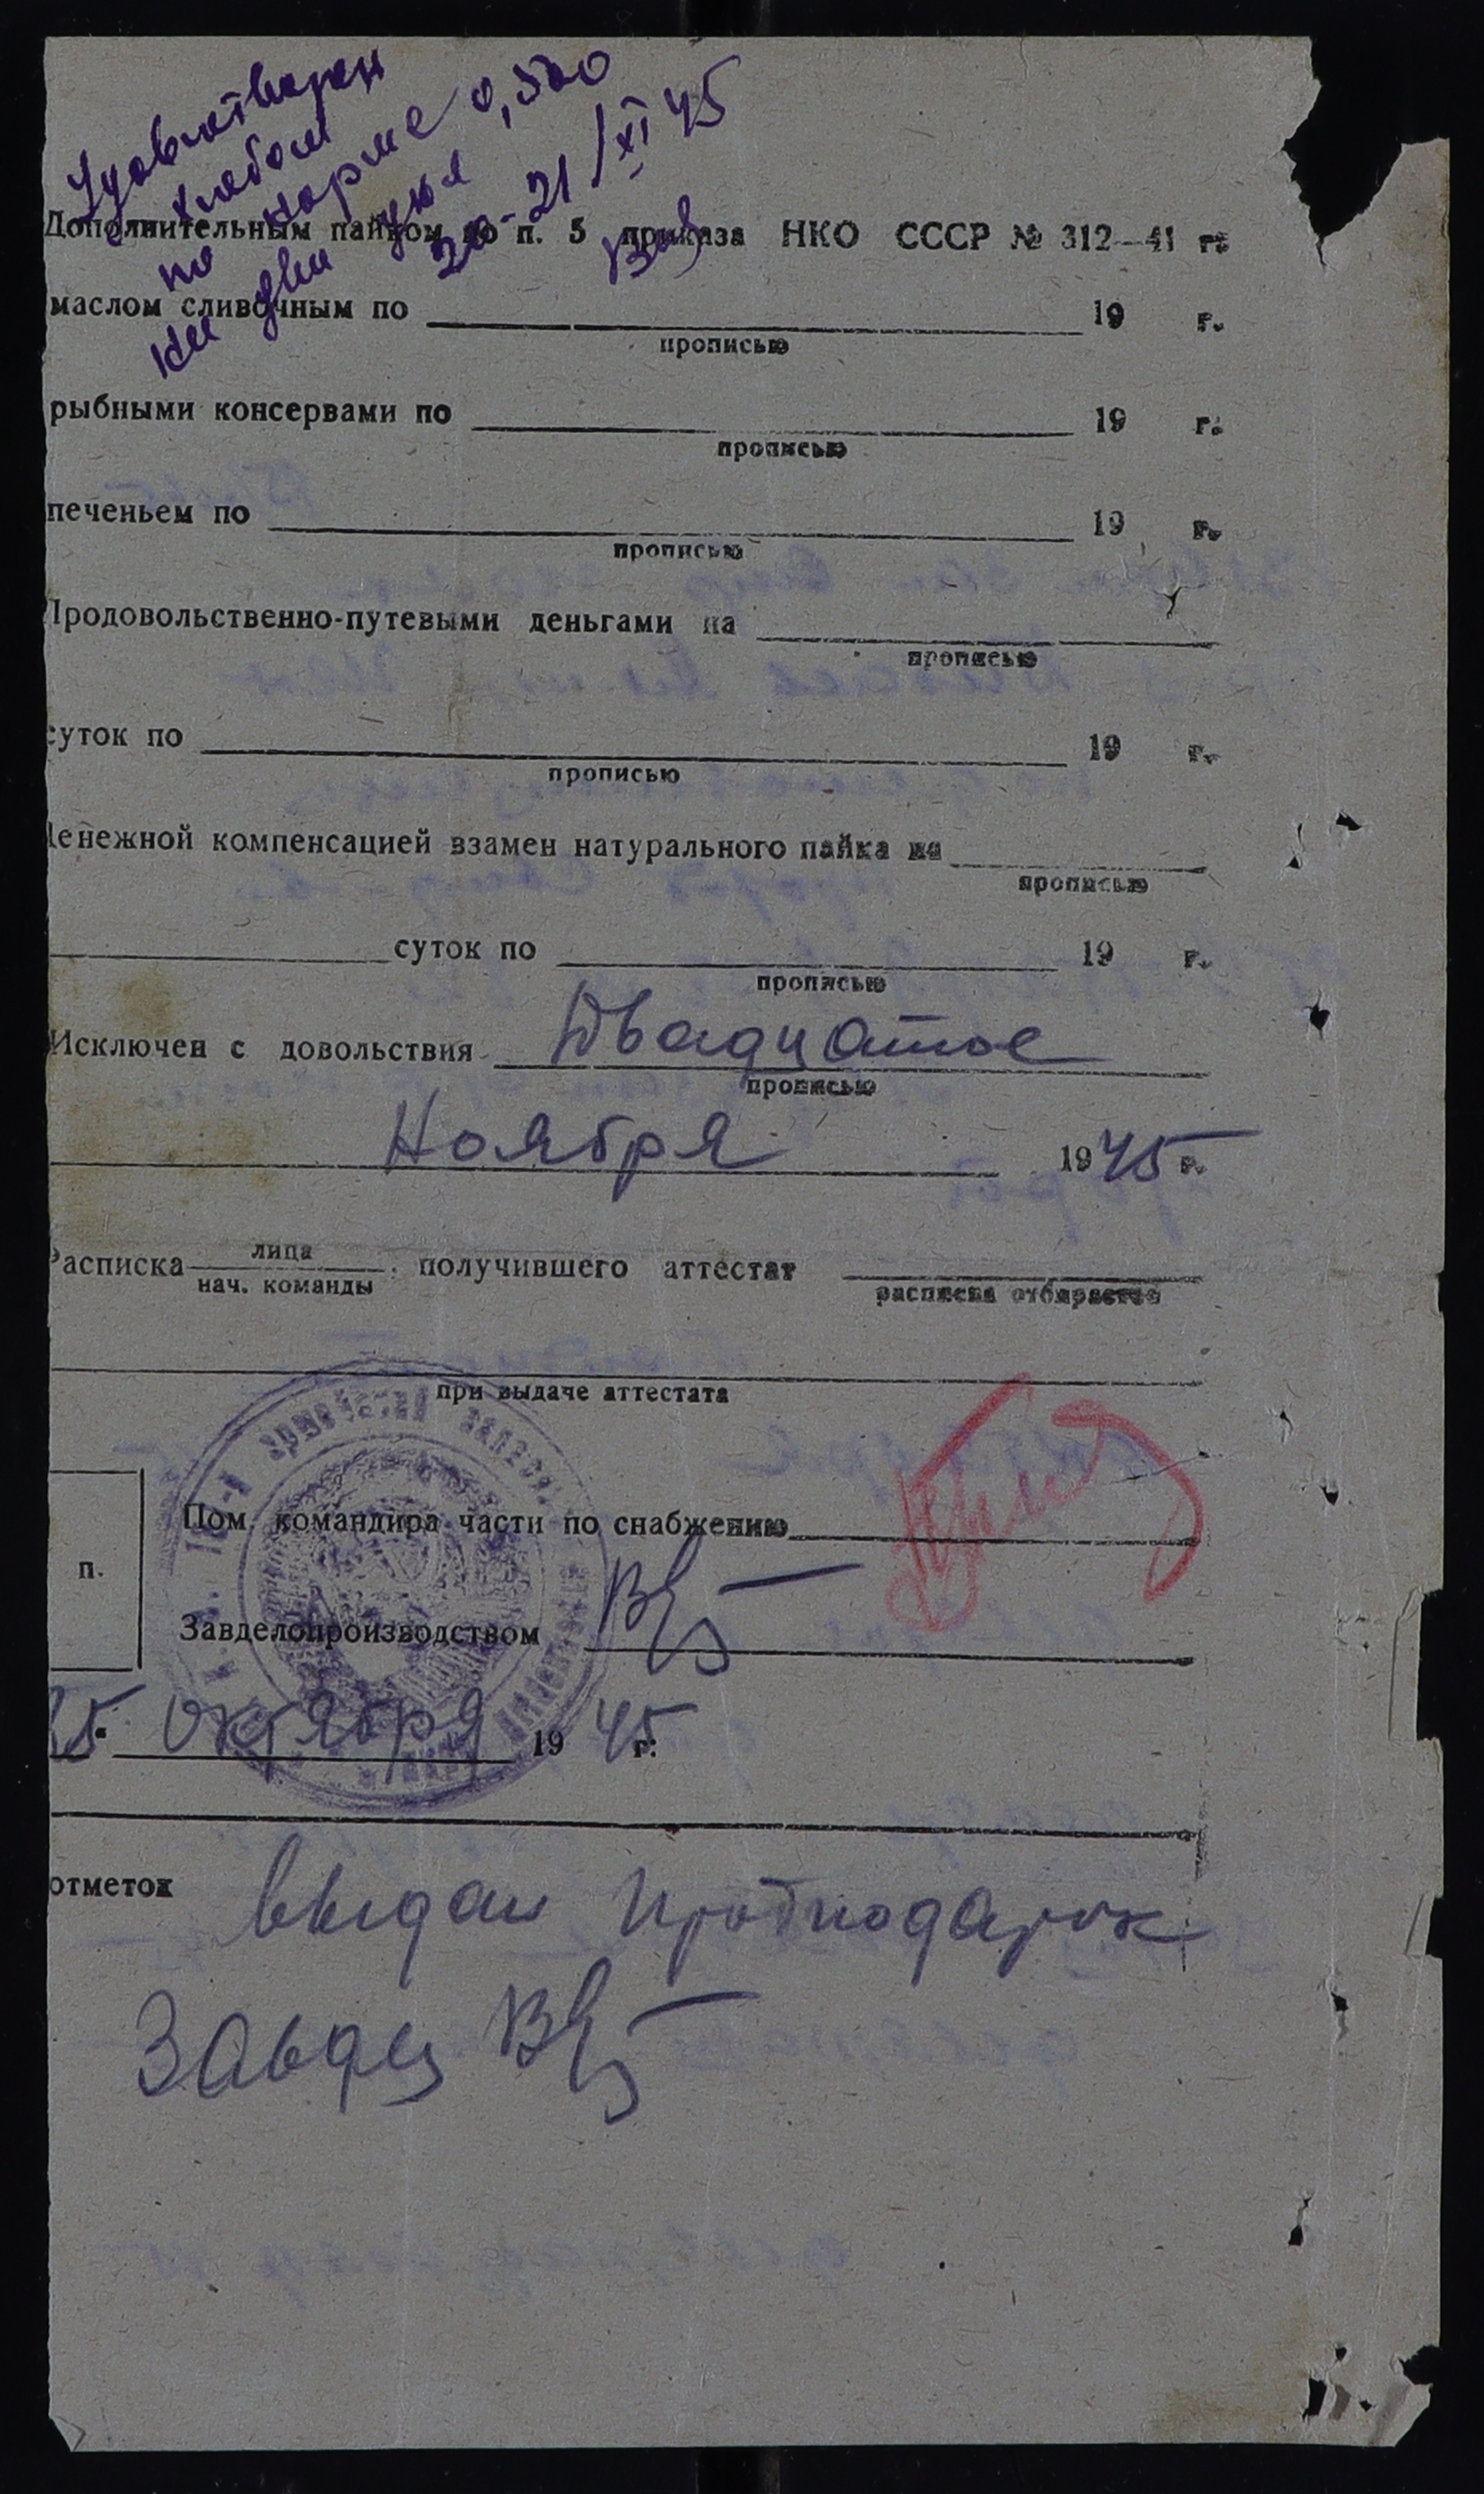 Удовлетворен
хлебом
по норме 0,500
на два дня
20-21/XI 45
Дополнительным пайком по п. 5 приказа НКО СССР № 312—41 г.
маслом сливочным по 19 г.
прописью
рыбными консервами по 19 г.
прописью
печеньем по 19 г.
прописью
Продовольственно-путевыми деньгами на
прописью
суток по 19 г.
прописью
Денежной компенсацией взамен натурального пайка на
прописью
суток по 19 г.
прописью
Исключен с довольствия Двадцатое
прописью
Ноября 1945 г.
Расписка лица
нач. команды получившего аттестат
расписка отбирается
при выдаче аттестата
Пом. командира части по снабжению
п.
Завделопроизводством
25 октября 1945 г.
отметок выдан продподарок
Завдел